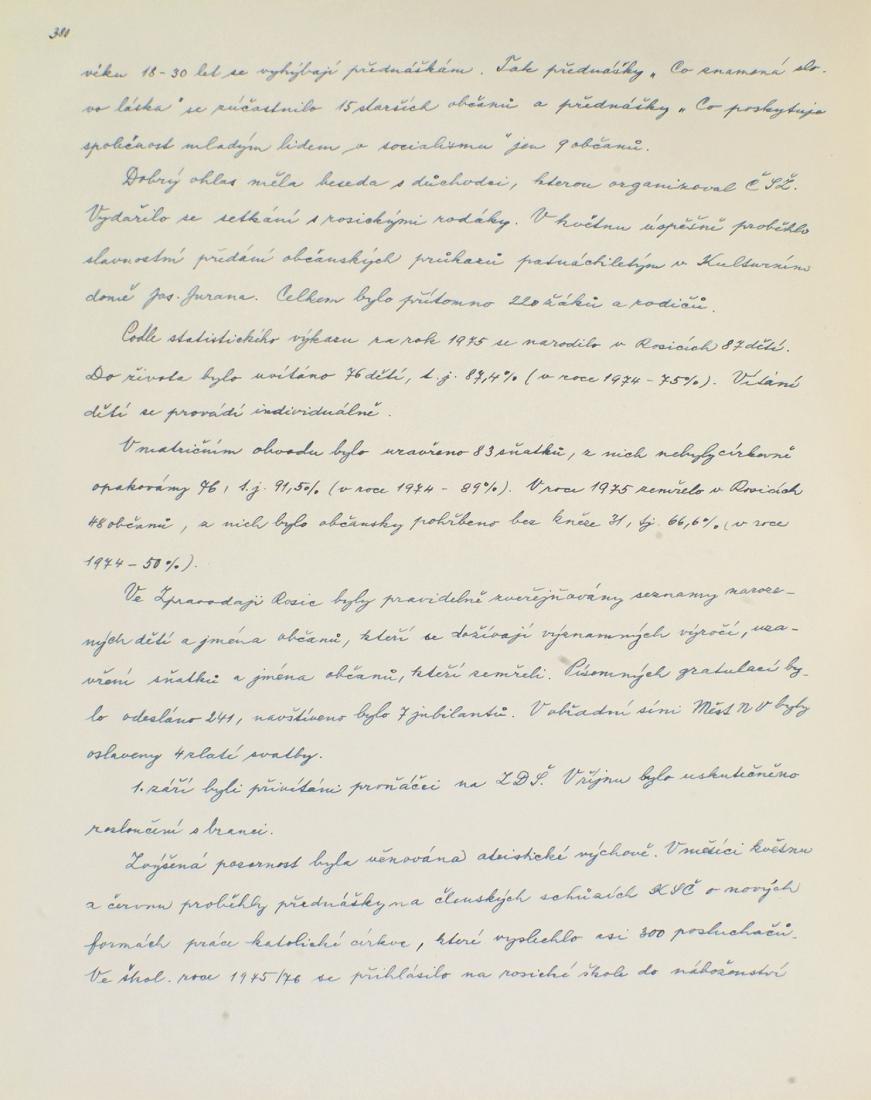 380
věku 18-30 let se vyhýbají přednáškám. Tak přednášky „Co znamená slo-
vo láska" se zúčastnilo 15 starších občanů a přednášky „Co poskytuje
společnost mladým lidem v socialismu" jen 9 občanů.
Dobrý ohlas měla beseda s důchodci, kterou organizoval ČSŽ.
Vydařilo se setkání s rosickými rodáky. V květnu úspěšně proběhlo
slavnostní předání občanských průkazů patnáctiletým v Kulturním
domě Jos. Jurana. Celkem bylo přítomno 220 žáků a rodičů.
Podle statistického výkazu za rok 1975 se narodilo v Rosicích 87 dětí.
Do života bylo uvítáno 76 dětí, t.j. 87,4% (v roce 1974 - 75%). Vítání
dětí se provádí individuálně.
V matričním obvodu bylo uzavřeno 83 sňatků, z nich nebyly církevně
opakovány 76, t.j. 91,5% (v roce 1974 - 89%). V roce 1975 zemřelo v Rosicích
48 občanů, z nich bylo občansky pohřbeno bez kněze 31, tj. 66,6% (v roce
1974 - 50%).
Ve Zpravodaji Rosic byly pravidelně zveřejňovány seznamy naroze-
ných dětí a jména občanů, kteří se dožívají významných výročí, uza-
vření sňatků a jména občanů, kteří zemřeli. Písemných gratulací by-
lo odesláno 241, navštíveno bylo 7 jubilantů. V obřadní síni Měst N V byly
oslaveny 4 zlaté svatby.
1. září byli přivítáni prvňáčci na ZDŠ. V říjnu bylo uskutečněno
rozloučení s branci.
Zvýšená pozornost byla věnována ateistické výchově. V měsíci květnu
a červnu proběhly přednášky na členských schůzích KSČ o nových
formách práce katolické církve, které vyslechlo asi 300 posluchačů.
Ve škol. roce 1975/76 se přihlásilo na rosické škole do náboženství